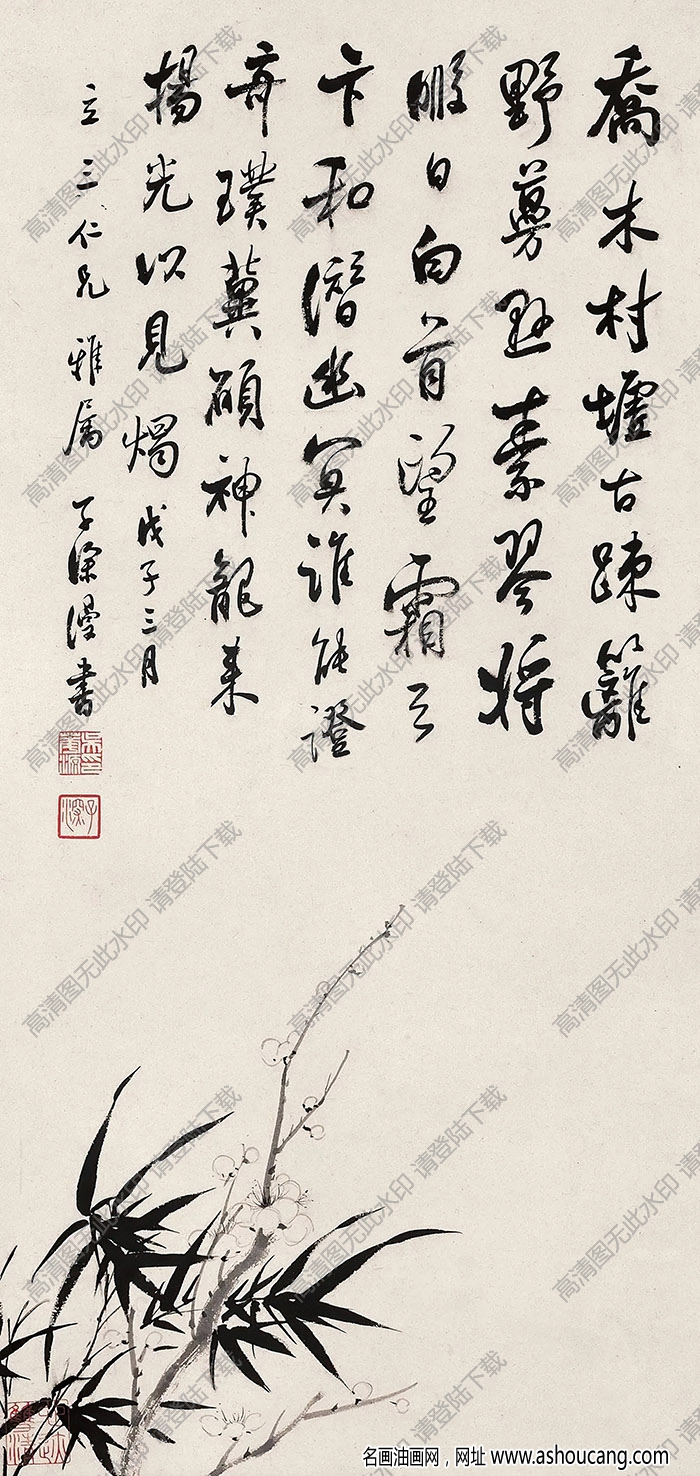 喬木村墟古疎籬
野蔓懸素琴将
暇日白首望霜天
卞和潛幽冥誰能證
奇璞冀願神龍来
揚光以見燭 戊子三月
立三仁兄雅屬 子深漫書
子深
高清图无此水印 请登陆下载
名画油画网，网址 www.ashoucang.com